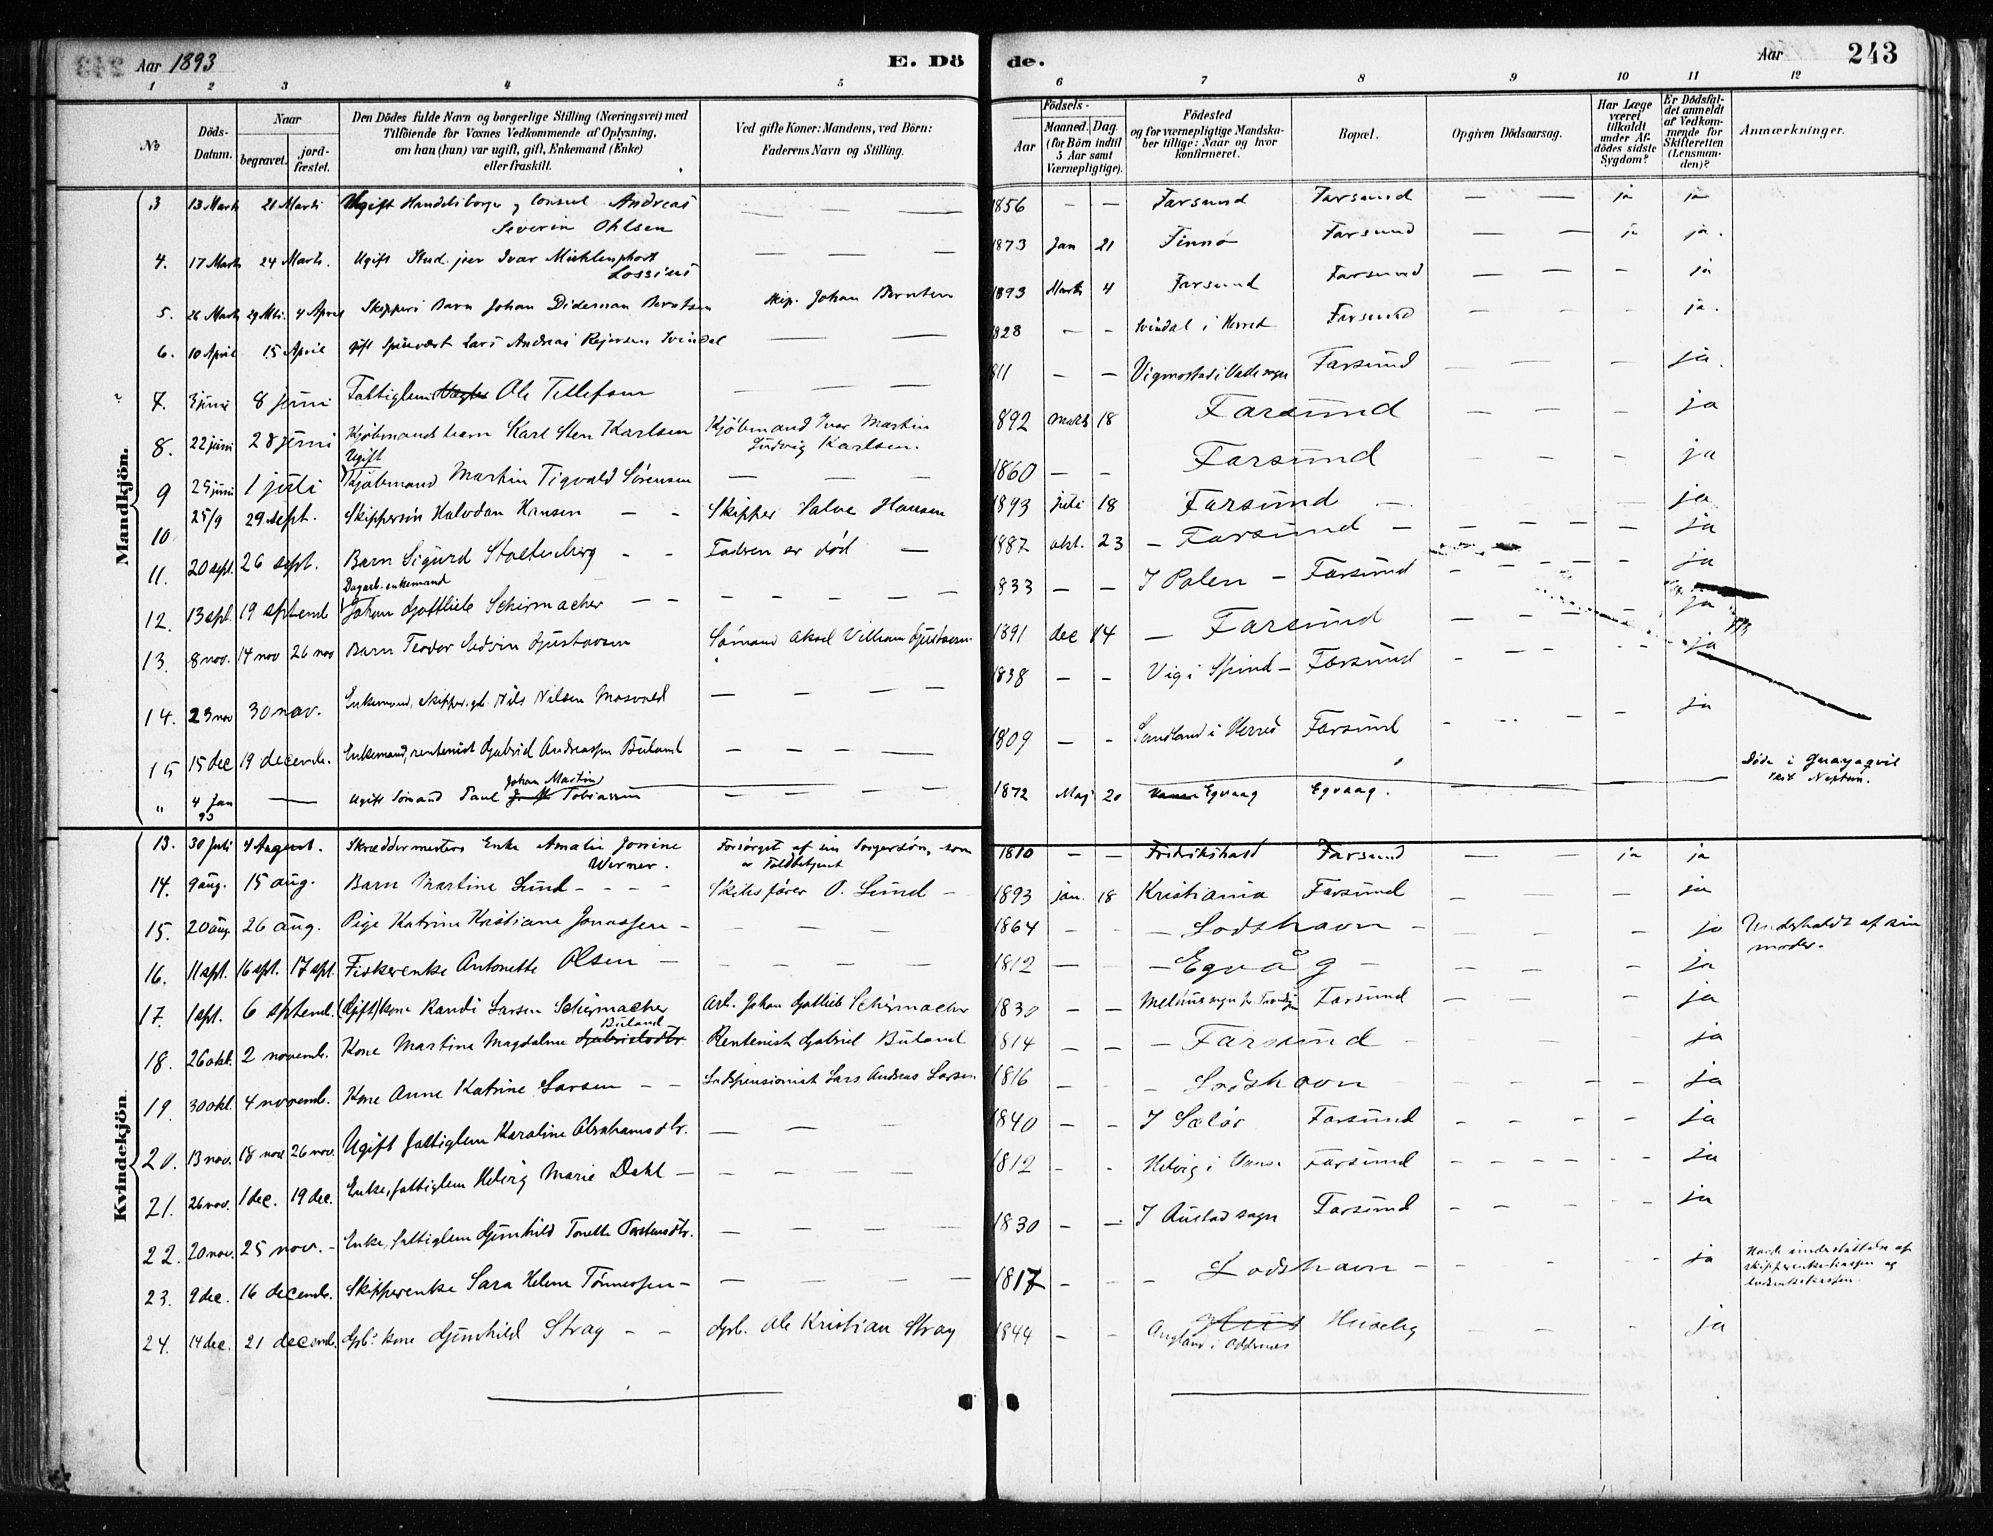 243
Aar 1893
E. Dö
de.
Aar
243
1 2 3 4 5 6 7 8 9 10 11 12
No
Döds-Datum.
Naar
begravet.
jord-fæstet.
Den Dödes fulde Navn og borgerlige Stilling (Næringsvei) med
Tilföiende for Voxnes Vedkommende af Oplysning,
om han (hun) var ugift, gift, Enkemand (Enke)
eller fraskilt.
Ved gifte Koner: Mandens, ved Börn:
Faderens Navn og Stilling.
Födsels-
Aar
Maaned. Dag.
(for Börn indtil
5 Aar samt
Værnepligtige).
Födested
og for værnepligtige Mandska-
ber tillige: Naar og hvor
konfirmeret.
Bopæl.
Opgiven Dödsaarsag.
Har Læge
været
tilkaldt
under Af-
dödes sidste
Sygdom?
Er Dödsfal-
det anmeldt
af Vedkom-
mende for
Skifteretten
(Lensman-
den)?
Anmærkninger.
Mandkjön.
3 13 Marts 21 Marts Ugift Handelsborger og Consul Andreas Severin Ohlsen — — — 1856 — — Farsund Farsund — — ja ja
4. 17 Marts 24 Marts. Ugift Stud. jur Ivar Micklenphort Lossius — — — 1873 Jan 21 Finnø Farsund — — ja ja.
5. 26 Marts 29 Mts. 4 April Skippers Barn Johan Dideman Berntsen Skip. Johan Berntsen 1893 Marts 4 Farsund Farsund — — — ja
6. 10 April 15 April gift Lars Andreas Rejersen Svindal — — — 1828 — — Svindal i Herred Farsund — — — ja.
7. 3 juni 8 juni Fattiglem Ole Tellefsen — — — 1811 — — Vigmostad i Valle sogn Farsund — — — ja.
8. 22 juni 28 juni Kjøbmands barn Karl Sten Karlsen Kjøbmand Ivar Martin Ludvig Karlsen. 1892 marts 18 Farsund — — — ja
9 25 juni 1 juli Ugift Kjøbmand Martin Sørensen — — — 1860 — — Farsund — — — ja
10 25/9 29 sept. Skippersøn Halvdan Hansen — — Skipper Salve Hansen 1893 juli 18 Farsund — — — ja
11. 20 sept. 26 sept. Barn Sigurd Stoltenberg — — Faderen er død — 1887 okt. 23 — Farsund — — — — — ja
12. 13 spt. 19 septemb Dagarb. enkemand Johan Gottlieb Schirmacher — — — — — 1833 — — I Polen — Farsund — — — — ja
13. 8 nov. 14 nov 26 nov Barn Teodor Gustavsen Sømand Aksel Vilham Gustavsen 1891 dec 14 — Farsund — — — — ja
14. 23 nov 30 nov. Enkemand, Skipper, Nils Nilsen Mosvold — — — — 1838 — — Vig i Spind — Farsund — — — — ja
15 15 dec 19 decemb. Enkemand, rentenist Gabriel Andreassen Buland — — — — 1809 — — Sandland i Herred Farsund — — — — ja
" 4 Jan 93 — Ugift Sømand Paul Johan Martin Tobiassen — — — — 1872 Maj 20 Egvaag Egvaag. — — Døde i Guayaqvil Neptun.
Kvindekjön.
13. 30 Juli 4 August. Skræddermesters Enke Amalie Jonine Werner. Forsørget af sin Svigersøn, som er Toldbetjent 1810 — — Fredrikshald Farsund — — ja ja
14. 9 aug. 15 aug. Barn Martine Lund — — — Skibsfører O. Lund — 1893 jan. 18 Kristiania Farsund — — — ja
15. 20 aug 26 aug. Pige Katrine Kristiane Jonassen — — — — 1864 — — — Lodshavn — — — — ja Underholdt af sin moder.
16. 11 spt. 16 spt. 17 spt. Fiskerenke Antonette Olsen — — — — — 1812 — — Egvåg — — — — ja
17. 1 spt. 6 septemb. (Gift) kone Randi Larsen Schirmacher Arb. Johan Gottlieb Schirmacher 1830 — — Melhus sogn Farsund — — — ja
18. 26 okt. 2 novemb. Kone Martine Magdalene Gabrielsdtr Buland Rentenist Gabriel Buland 1814 — — — Farsund — — — ja
19. 30 okt. 4 novemb. Kone Anne Katrine Larsen — — Lodspensionist Lars Andreas Larsen 1816 — — — Lodshavn — — — — ja
20. 13 nov. 18 nov 26 nov. Ugift fattiglem Karoline Abrahamsdtr. — — — 1840 — — I Sæløe Farsund — — — — ja
21. 26 nov. 1 dec. 19 dec. Enke, fattiglem Helvig Marie Dahl — — — — 1812 — — Helvig i Vanse Farsund — — — — — ja
22. 20 nov. 25 nov. — Enke, fattiglem Gunhild Tonette Torstensdtr. — — — 1830 — — I Austad sogn Farsund — — — — — ja
23. 9 dec. 16 decemb. Skipperenke Sara Helene Tønnessen — — — — — 1817 — — — Lodshavn — — — — — ja Havde understøttelse af skipperenkekassen og
24. 14 dec. 21 decemb. Gbr. kone Gunhild Stray — — Gbr. Ole Kristian Stray 1844 — — Hus Angland i Oddernes Huseby — — — ja